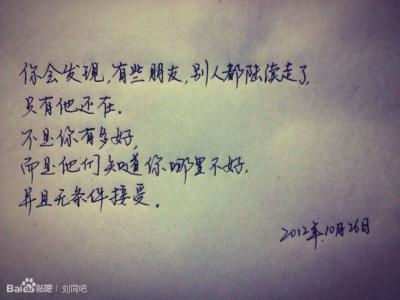 你会发现,有些朋友,别人都陆续走了,
只有他还在.
不是你有多好,
而是他们知道你哪里不好,
并且无条件接受。
2012年.10月26日
Bai贴吧 | 刘同吧